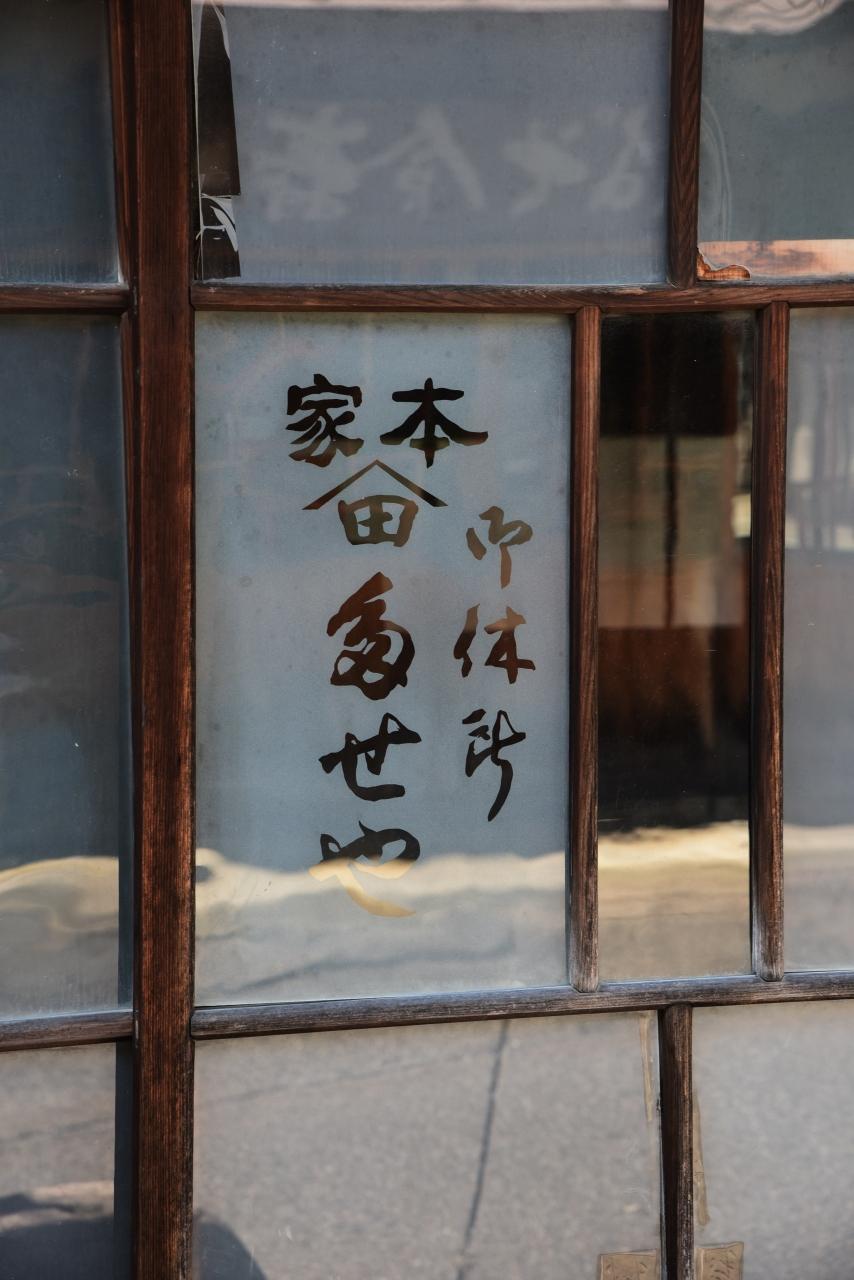 本家
御休所
田
多せや